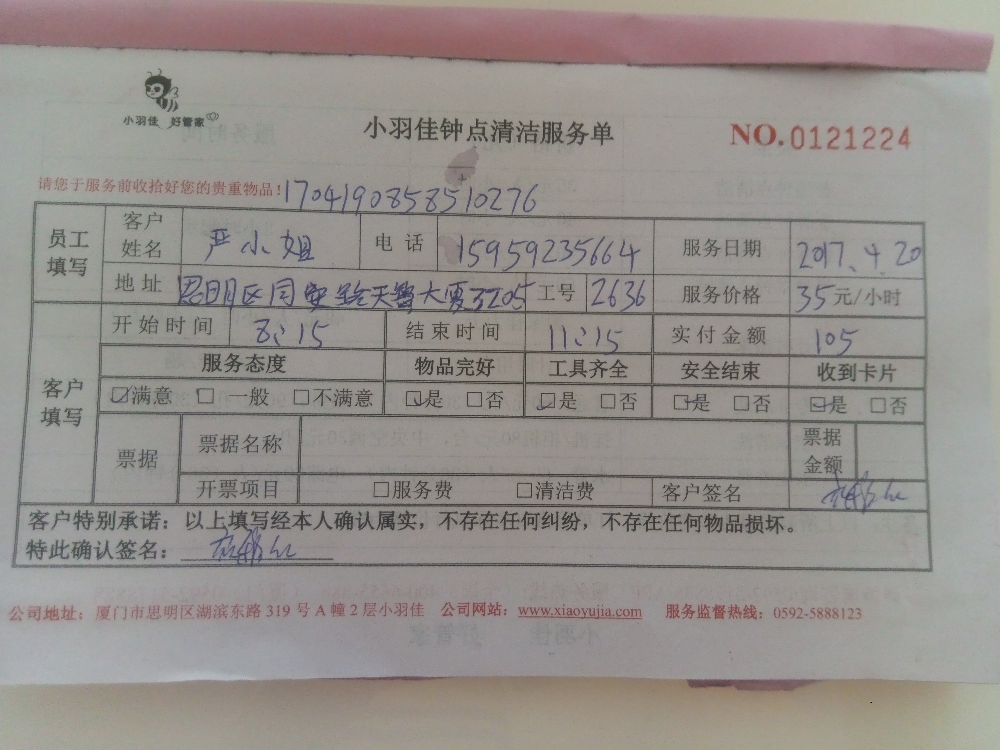 小羽佳 好管家
小羽佳钟点清洁服务单
NO.0121224
请您于服务前收拾好您的贵重物品！1704190858510276
员工填写 客户姓名 严小姐 电话 15959235664 服务日期 2017.4.20
地址 思明区同安路天鹭大厦3205 工号 2636 服务价格 35元/小时
客户填写 开始时间 8:15 结束时间 11:15 实付金额 105
服务态度 物品完好 工具齐全 安全结束 收到卡片
☑满意 □一般 □不满意 ☑是 □否 ☑是 □否 ☑是 □否 ☑是 □否
票据 票据名称 票据金额
开票项目 □服务费 □清洁费 客户签名
客户特别承诺：以上填写经本人确认属实，不存在任何纠纷，不存在任何物品损坏。
特此确认签名：
公司地址：厦门市思明区湖滨东路 319 号 A 幢 2 层小羽佳 公司网站：www.xiaoyujia.com 服务监督热线：0592-5888123